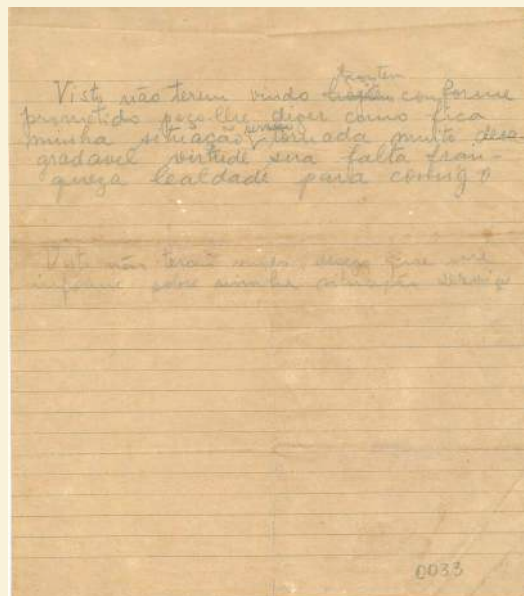 hontem
Visto não terem vindo conforme
prometido peço-lhe dizer como fica
minha situação tornada muito desa-
gradavel virtude sua falta fran-
queza lealdade para comigo
Visto não vindo desejo que me
informe sobre minha situação serviço
0033